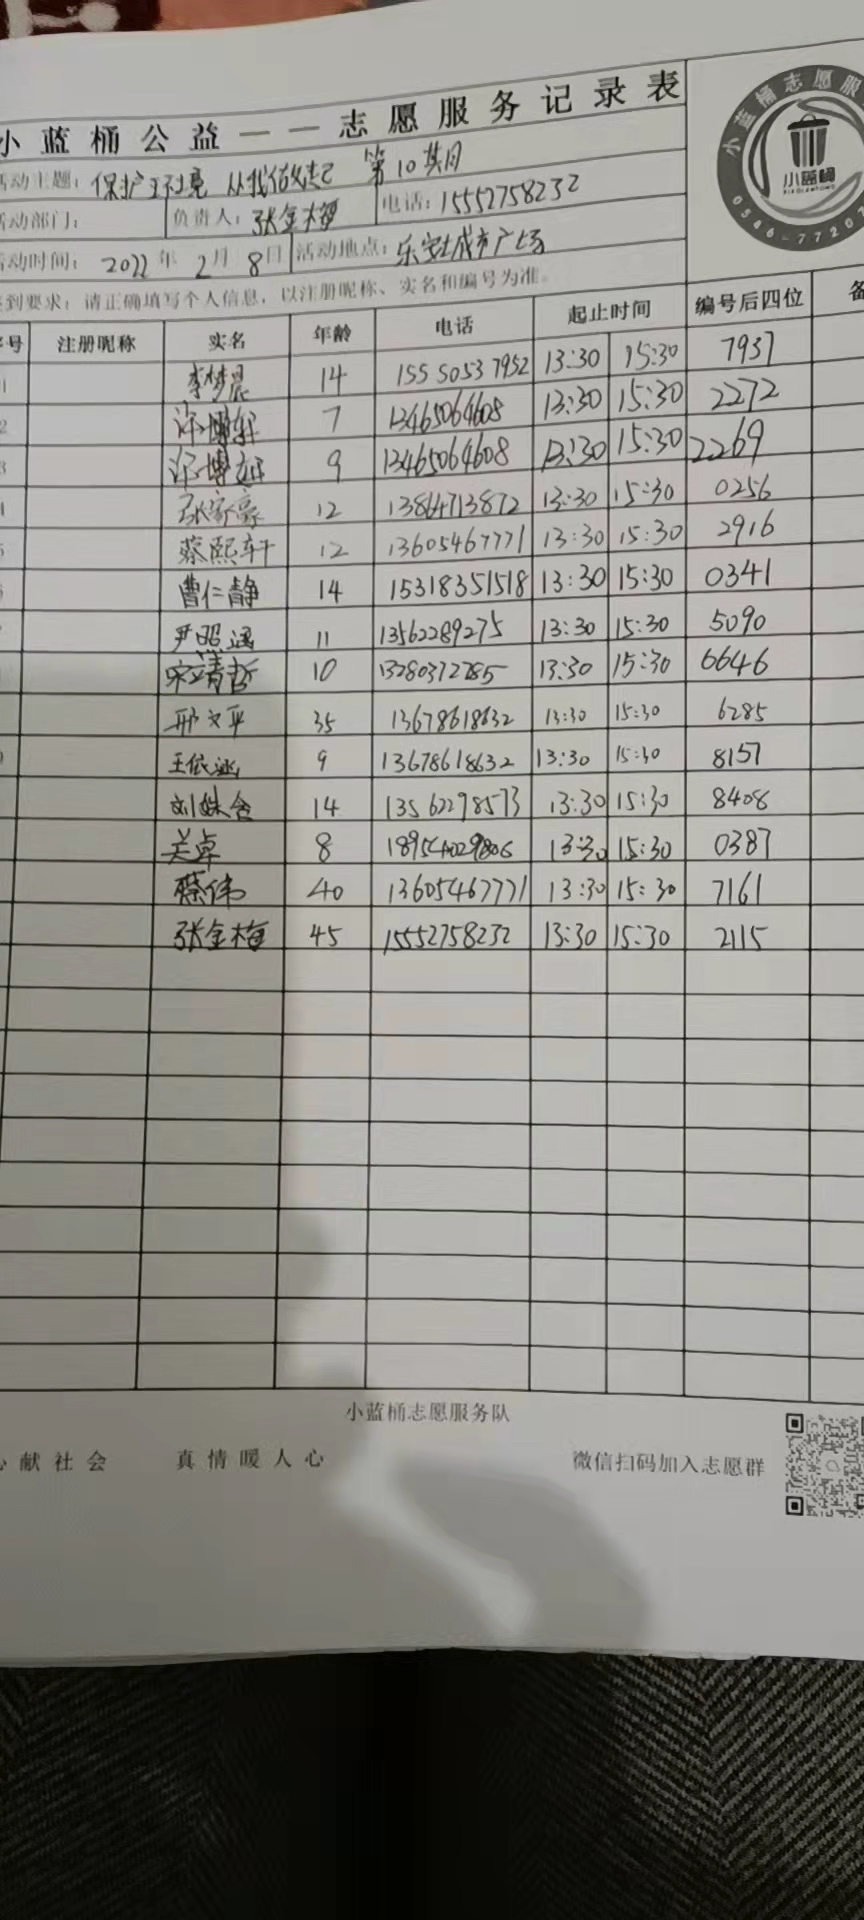 小蓝桶公益——志愿服务记录表
活动主题：保护环境 从我做起 第10期
活动部门： 负责人：张金梅 电话：15552758232
活动时间：2022年2月8日 活动地点：乐安城市广场
到要求：请正确填写个人信息，以注册昵称、实名和编号为准。
号 注册昵称 实名 年龄 电话 起止时间 编号后四位 备
李梦晨 14 155 5053 7952 13:30 15:30 7937
许博轩 7 13465064608 13:30 15:30 2272
许博 9 13465064608 13:30 15:30 2269
张家豪 12 13864713872 13:30 15:30 0256
蔡熙轩 12 13605467771 13:30 15:30 2916
曹仁静 14 15318351518 13:30 15:30 0341
尹照涵 11 13562289275 13:30 15:30 5090
宋靖哲 10 13280372785 13:30 15:30 6646
邢文平 35 13678618632 13:30 15:30 6285
王依涵 9 13678618632 13:30 15:30 8157
刘姝含 14 13562298573 13:30 15:30 8408
关卓 8 13:30 15:30 0387
蔡伟 40 13605467771 13:30 15:30 7161
张金梅 45 15552758232 13:30 15:30 2115
小蓝桶志愿服务队
心献社会 真情暖人心 微信扫码加入志愿群
小蓝桶志愿服
小蓝桶
XIAOLANTONG
0546-77207